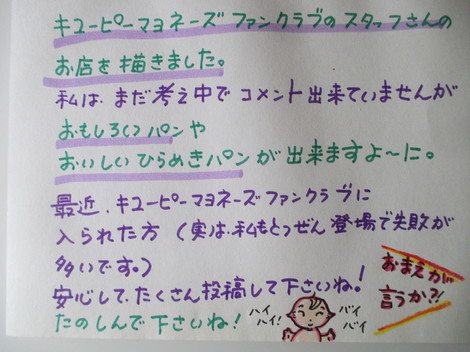 キユーピーマヨネーズファンクラブのスタッフさんの
お店を描きました。
私は、まだ考え中でコメント出来ていませんが
おもしろいパンや
おいしいひらめきパンが出来ますよ〜に。
最近、キユーピーマヨネーズファンクラブに
入られた方（実は、私もとつぜん登場で失敗が
多いです。）
安心して、たくさん投稿して下さいね！
たのしんで下さいね！
ハイ
ハイ！
バイ
バイ
おまえが
言うか?!